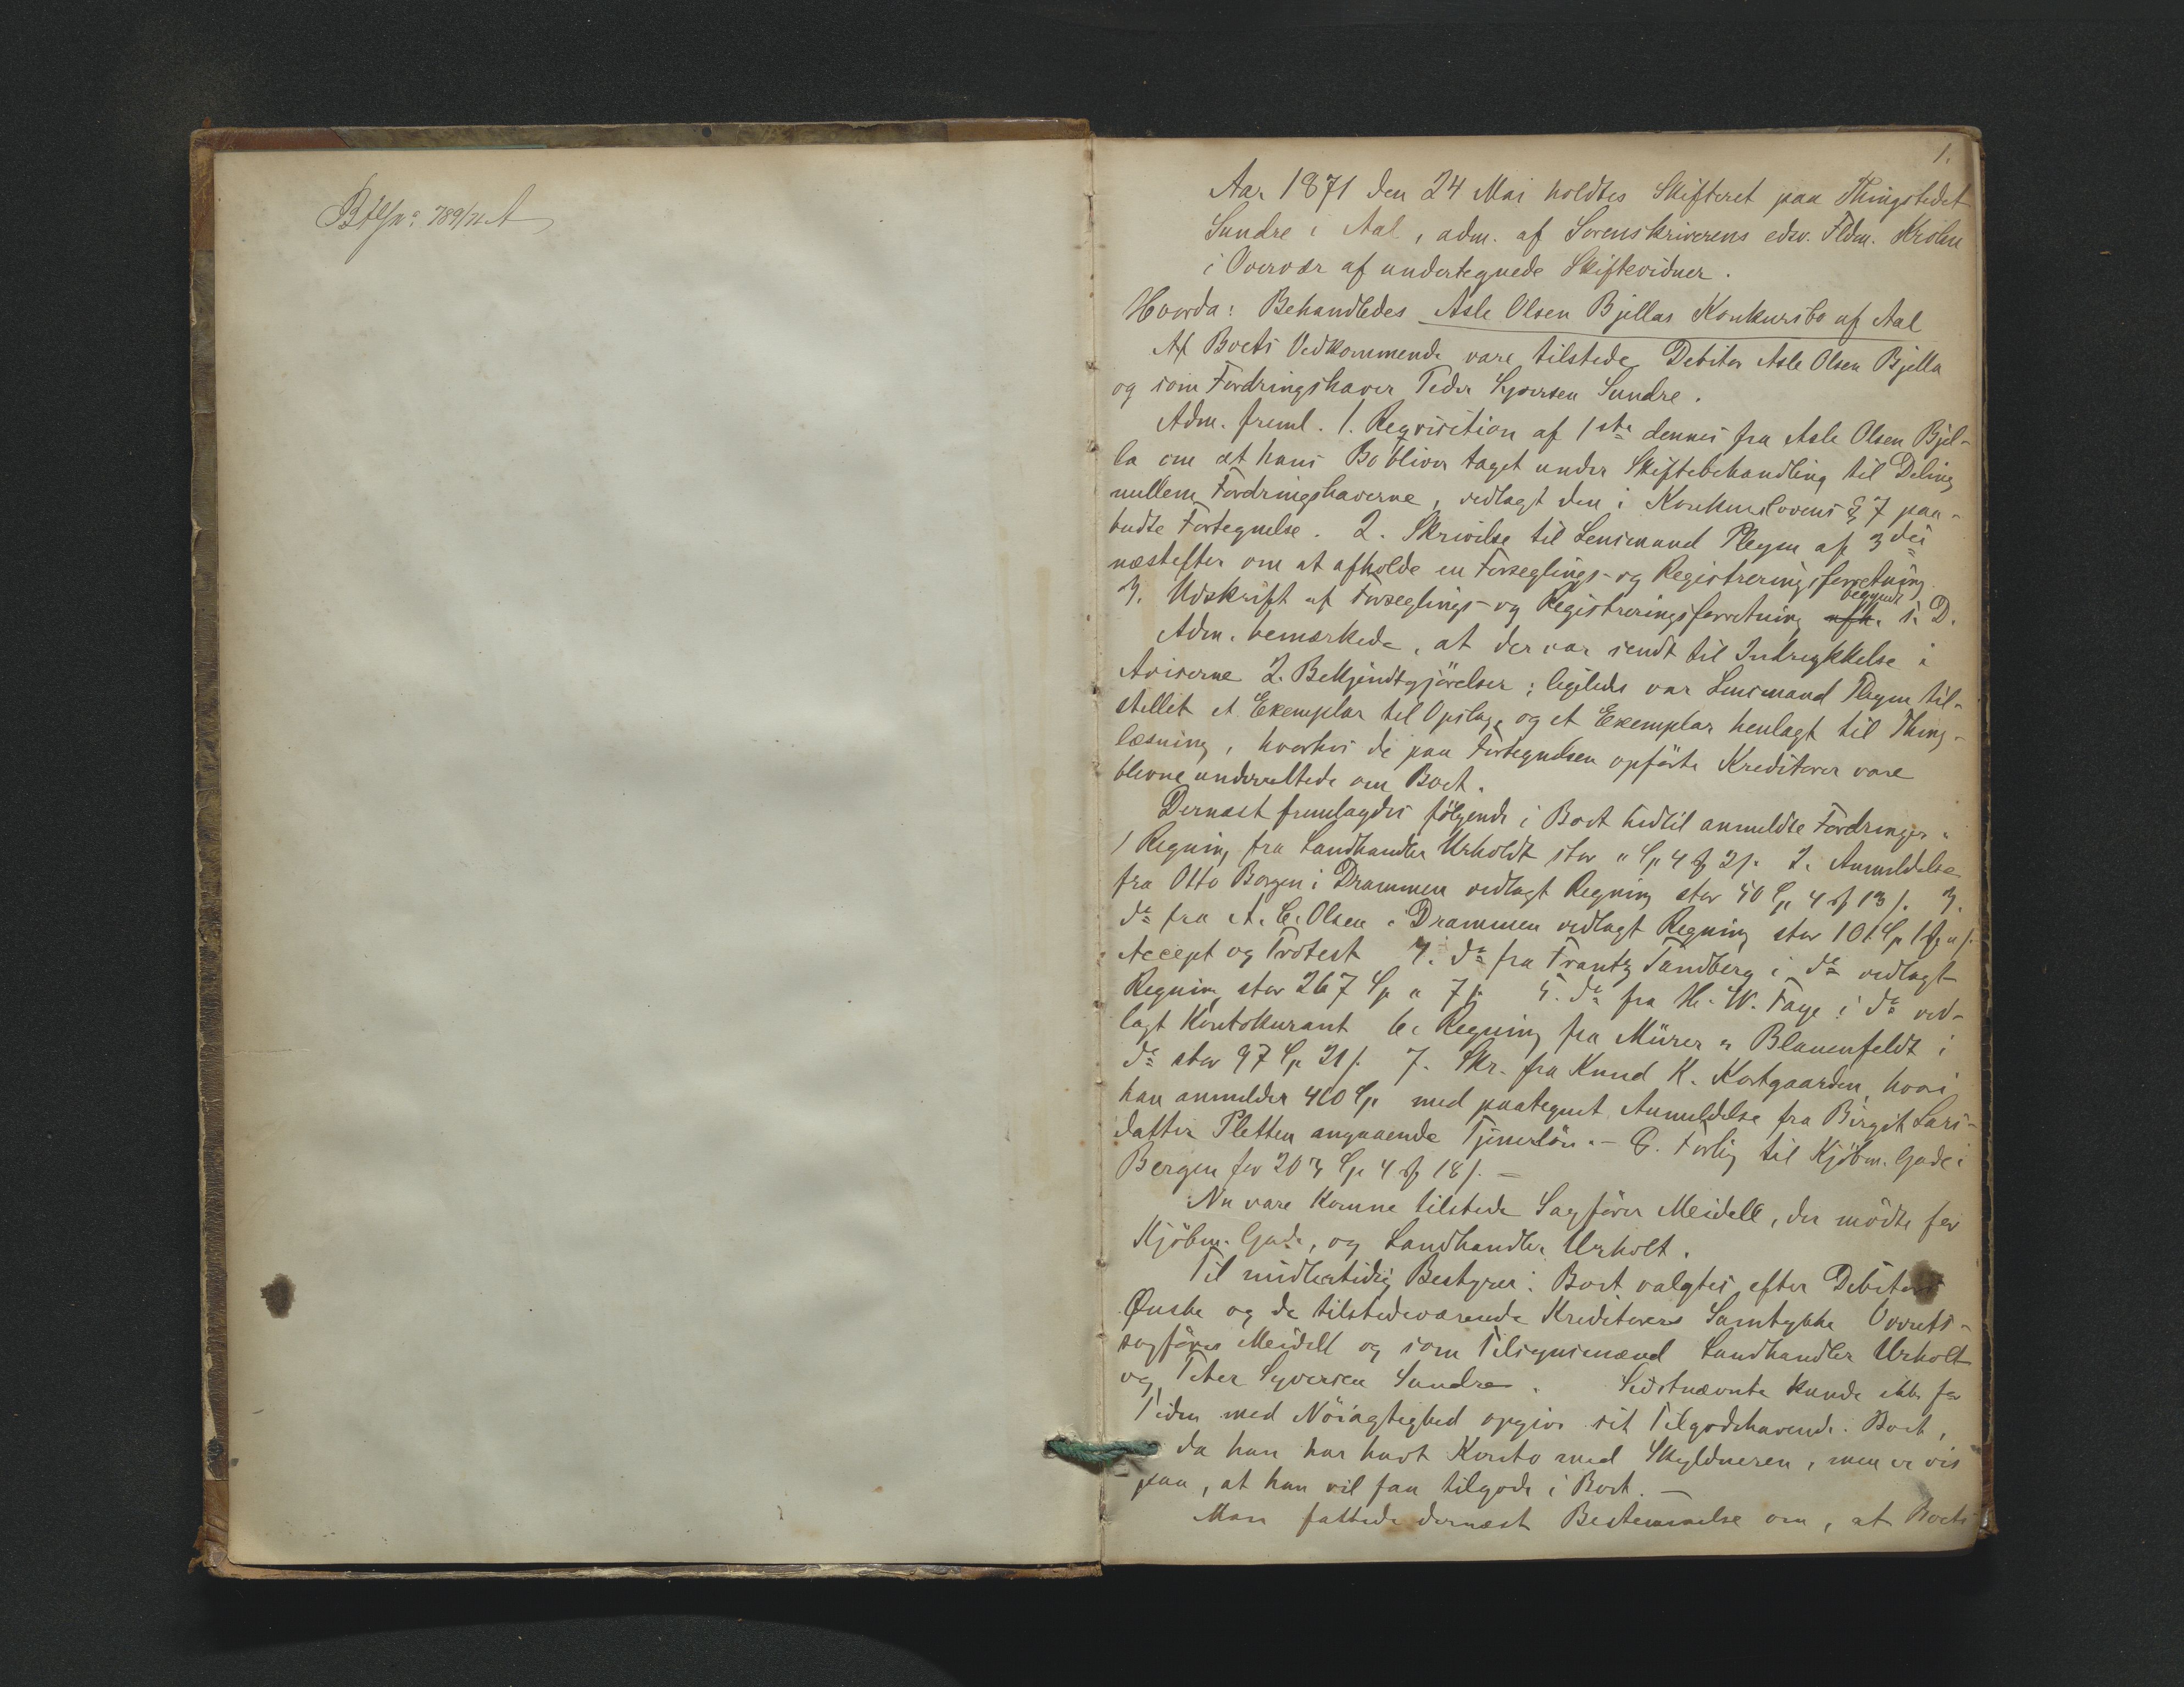 789/71 A
1.
Aar 1871 den 24 Mai holdtes Skifteret paa Thingstedet
Sundre i Aal, adm. af Sorenskriverens edsv. Fldm.
i Overvær af undertegnede Skiftevidner.
Hvorda: Behandledes Asle Olsen Bjellas Konkursbo af Aal
Af Boets Vedkommende vare tilstede Debitor Asle Olsen Bjella
og som Fordringshaver Peder Syversen Sundre.
Adm. freml. 1. Reqvisition af 1ste dennes fra Asle Olsen Bjel-
la om at hans Bo bliver taget under Skiftebehandling til Deling
mellem Fordringshaverne, vedlagt den i Konkurslovens § 7 paa-
budte Fortegnelse. 2. Skrivelse til Lensmand Pleym af 3die
næstefter om at afholde en Forseglings- og Registreringsforretning
3. Udskrift af Forseglings- og Registreringsforretning afh. begyndt s. D.
Adm. bemærkede, at der var sendt til Indrykkelse i
Aviserne 2. Bekjendtgjörelser; ligeledes var Lensmand Pleym til-
stillet et Exemplar til Opslag, og et Exemplar henlagt til Thing-
læsning, hvorhos de paa Fortegnelsen opförte Kreditorer vare
blevne underrettede om Boet.
Dernæst fremlagdes fölgende i Boet hidtil anmeldte Fordringer:
1 Regning fra Landhandler Urholdt stor " Sp 4 ₰ 2 s. 2. Anmeldelse
fra Otto Borgen i Drammen vedlagt Regning stor 50 Sp 4 ₰ 13 s. 3.
do fra A. C. Olsen i Drammen vedlagt Regning stor 101 Sp 1 ₰ " s.
Accept og Protest 4. do fra Frantz Tandberg i do vedlagt
Regning stor 267 Sp " 7 s. 5. do fra H. W. Faye i do ved-
lagt Kontokurant 6. Regning fra Mürer & Blauenfeldt i
do stor 97 Sp 21 s. 7. Skr. fra Knud K. Kortgaarden, hvori
han anmelder 400 Sp med paategnet Anmeldelse fra Birgit Lars-
datter Pletten angaaende Tjenerlön. - 8. Forlig til Kjöbm. Gade i
Bergen for 203 Sp 4 ₰ 18 s. -
Nu vare komne tilstede Sagförer Meidell, der mödte for
Kjöbm. Gade, og Landhandler Urholt.
Til midlertidig Bestyrer i Boet valgtes efter Debitors
Ønske og de tilstedeværende Kreditorers Samtykke Overrets-
sagförer Meidell og som Tilsynsmænd Landhandler Urholt
og Peter Syversen Sundre. Sidstnævnte kunde ikke for
Tiden med Nöiagtighed opgive sit Tilgodehavende i Boet,
da han har havt Konto med Skyldneren, men er vis
paa, at han vil faa tilgode i Boet. -
Man fattede dernæst Bestemmelse om, at Boets